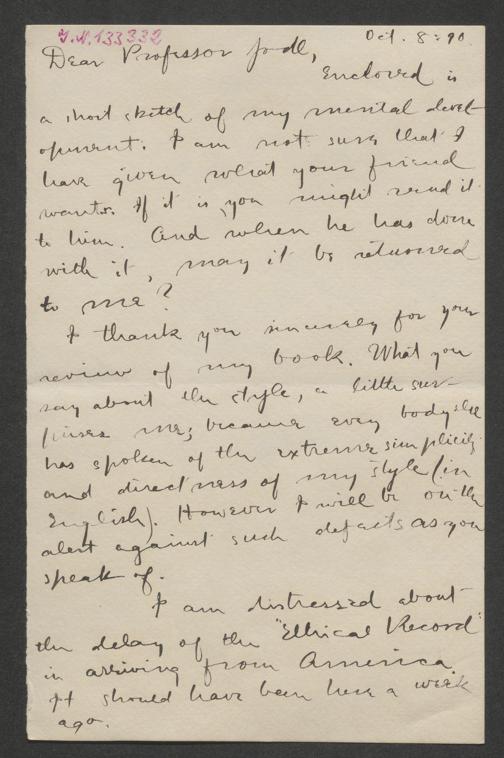 I.N.133332
Oct. 8: 90
Dear Professor Jodl,
Enclosed is
a short sketch of my mental devel-
opment. I am not sure that I
have given what your friend
wants. If it is, you might send it
to him. And when he has done
with it, may it be returned
to me?
I thank you sincerely for your
review of my book. What you
say about the style, a little sur-
prises me; because every body else
has spoken of the extreme simplicity
and directness of my style (in
English). However I will be on the
alert against such defects as you
speak of.
I am distressed about
the delay of the "Ethical Record"
in arriving from America.
It should have been here a week
ago.